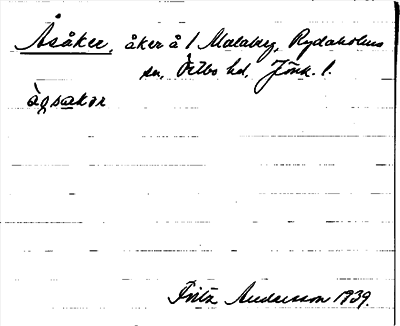 Åsåker, åker å 1 Målaby, Rydaholms
sn, Östbo hd, Jönk. l.
Fritz Andersson 1939.